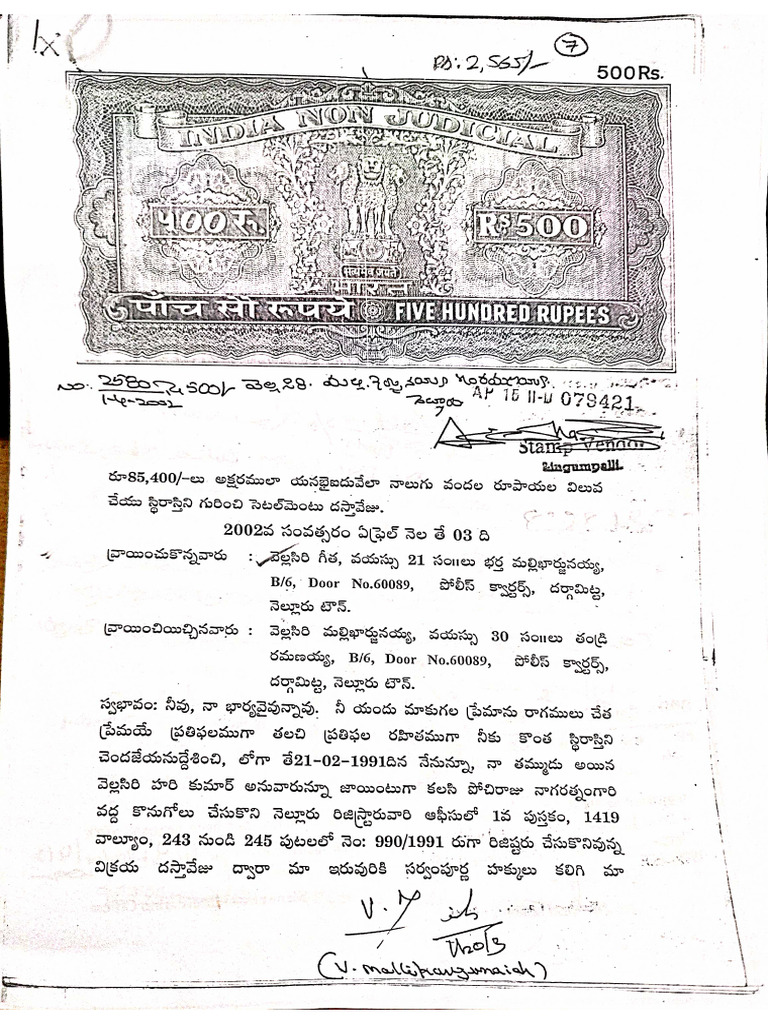 7
Rs: 2,565/-
500Rs.
INDIA NON JUDICIAL
५00 रु.
Rs 500
सत्यमेव जयते
भारत
पाँच सौ रुपये
FIVE HUNDRED RUPEES
No: 2580
500/-
079421
Stamp Vendor
Lingumpalli.
రూ85,400/-లు అక్షరములా యనభైఐదువేలా నాలుగు వందల రూపాయల విలువ
చేయు స్థిరాస్తిని గురించి సెటల్‌మెంటు దస్తావేజు.
2002వ సంవత్సరం ఏప్రైల్ నెల తే 03 ది
వ్రాయించుకొన్నవారు : వెల్లసిరి గీత, వయస్సు 21 సం॥లు భర్త మల్లిఖార్జునయ్య,
B/6, Door No.60089, పోలీస్ క్వార్టర్స్, దర్గామిట్ట,
నెల్లూరు టౌన్.
వ్రాయించియిచ్చినవారు : వెల్లసిరి మల్లిఖార్జునయ్య, వయస్సు 30 సం॥లు తండ్రి
రమణయ్య, B/6, Door No.60089, పోలీస్ క్వార్టర్స్,
దర్గామిట్ట, నెల్లూరు టౌన్.
స్వభావం: నీవు, నా భార్యవైవున్నావు. నీ యందు మాకుగల ప్రేమాను రాగములు చేత
ప్రేమయే ప్రతిఫలముగా తలచి ప్రతిఫల రహితముగా నీకు కొంత స్థిరాస్తిని
చెందజేయనుద్దేశించి, లోగా తే21-02-1991దిన నేనున్నూ, నా తమ్ముడు అయిన
వెల్లసిరి హరి కుమార్ అనువారున్నూ జాయింటుగా కలసి పోచిరాజు నాగరత్నంగారి
వద్ద కొనుగోలు చేసుకొని నెల్లూరు రిజిస్ట్రారువారి ఆఫీసులో 1వ పుస్తకం, 1419
వాల్యూం, 243 నుండి 245 పుటలలో నెం: 990/1991 రుగా రిజిష్టరు చేసుకొనివున్న
విక్రయ దస్తావేజు ద్వారా మా ఇరువురికి సర్వంపూర్ణ హక్కులు కలిగి మా